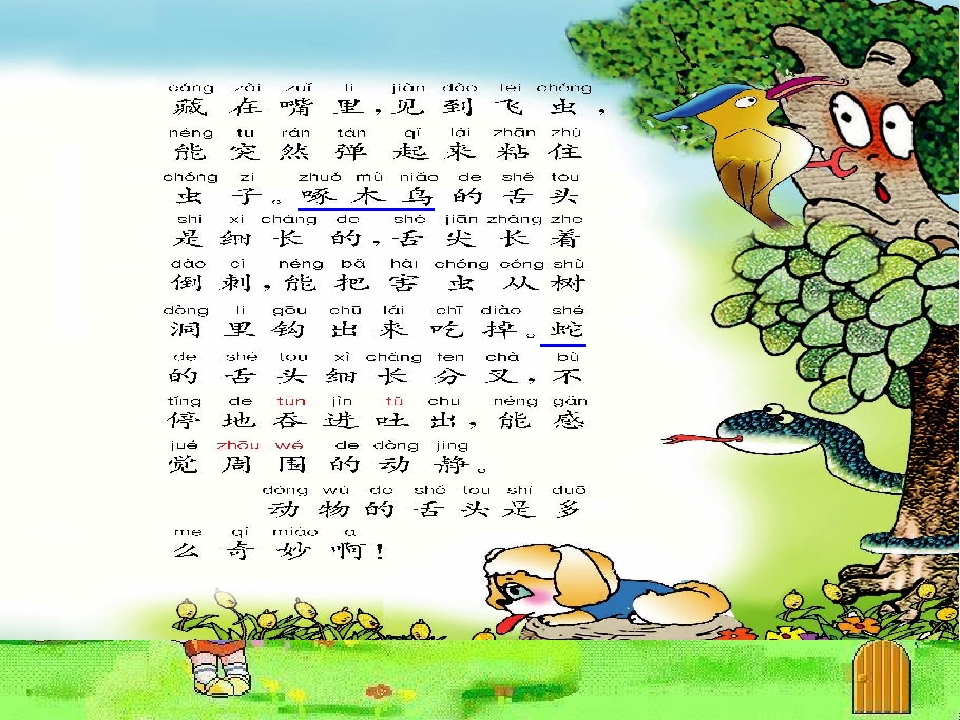 cáng zài zuǐ li jiàn dào fēi chóng
藏在嘴里，见到飞虫，
néng tū rán tán qǐ lái zhān zhù
能突然弹起来粘住
chóng zi zhuó mù niǎo de shé tou
虫子。啄木鸟的舌头
shì xì cháng de shé jiān zhǎng zhe
是细长的，舌尖长着
dào cì néng bǎ hài chóng cóng shù
倒刺，能把害虫从树
dòng li gōu chū lái chī diào shé
洞里钩出来吃掉。蛇
de shé tou xì cháng fēn chà bù
的舌头细长分叉，不
tíng de tūn jìn tǔ chū néng gǎn
停地吞进吐出，能感
jué zhōu wéi de dòng jìng
觉周围的动静。
dòng wù de shé tou shì duō
动物的舌头是多
me qí miào a
么奇妙啊！